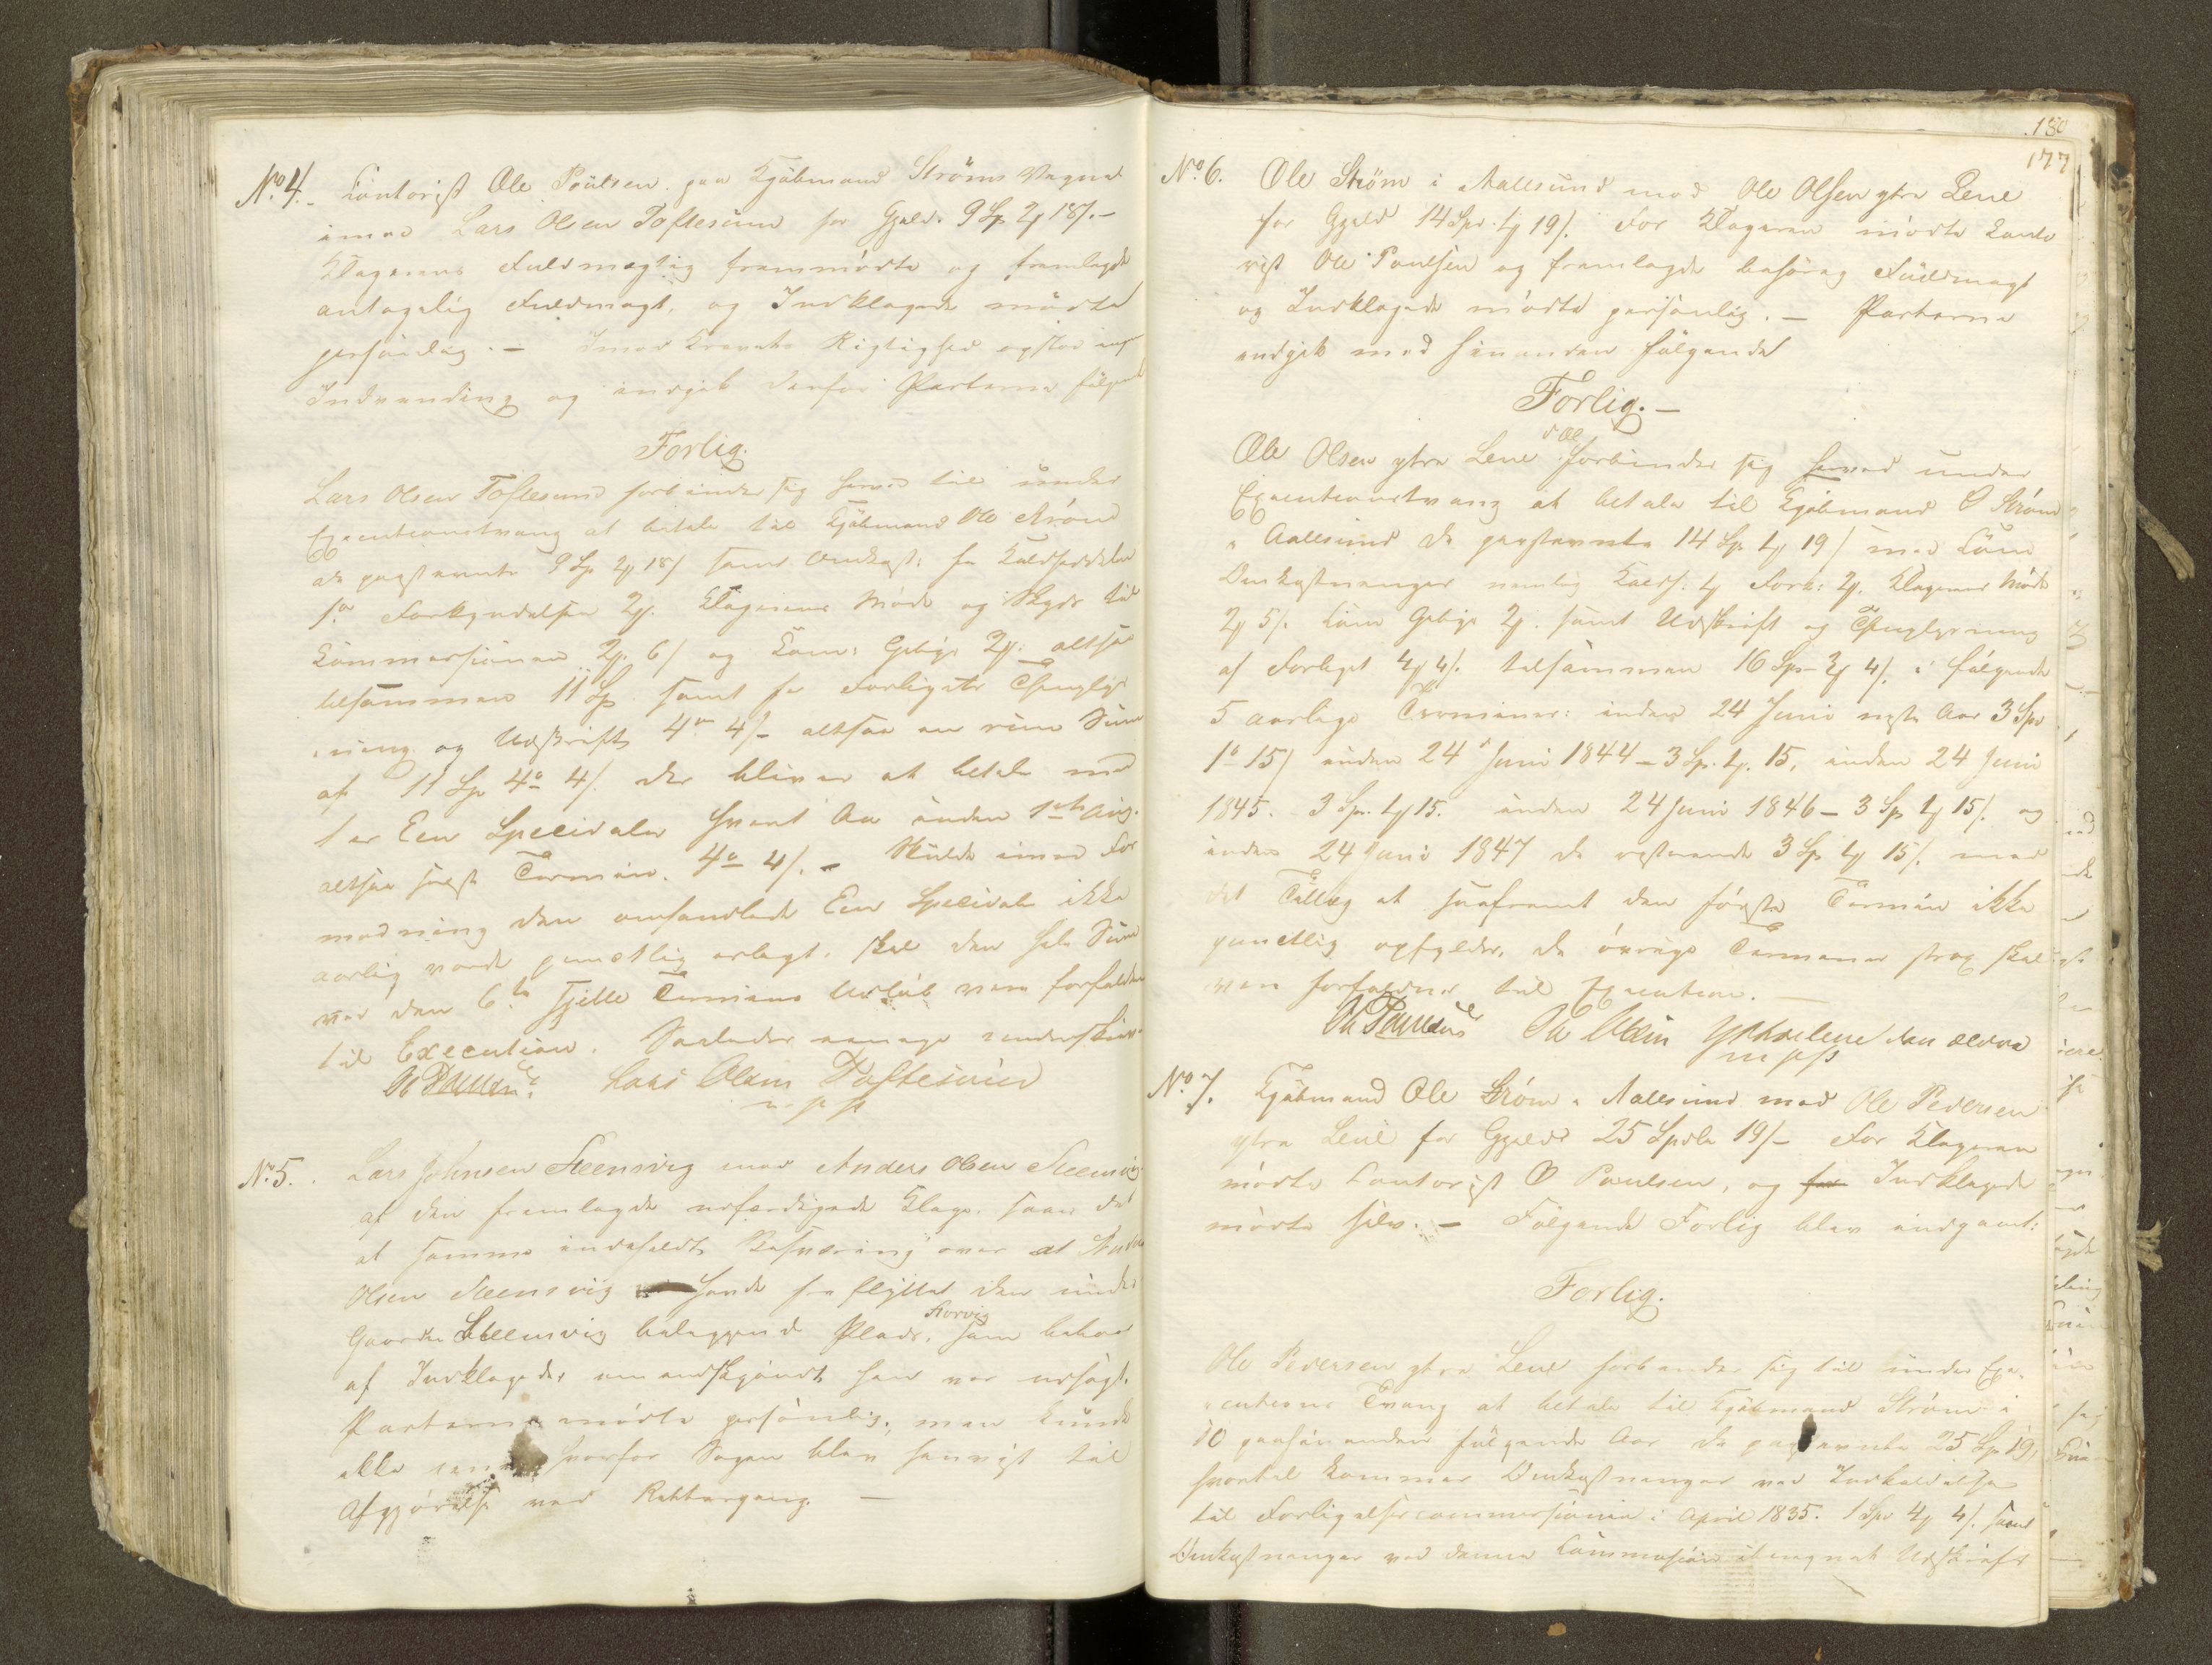 No 4. Contorist Ole Poulsen paa Kjøbmand Strøms Vegne
imod Lars Olsen Toftesund for Gjeld 9 Sp 2 18/.-
Klagerens Fuldmægtig fremmødte og fremlagde
antagelig Fuldmagt, og Indklagede mødte
personlig. – Imod Kravets Rigtighed opstod ingen
Indvending og indgik derfor Parterne følgende
Forlig.
Lars Olsen Toftesund forbinder sig herved til under
Executionstvang at betale til Kjøbmand Ole Strøm
de paastevnte 9 Sp 2 18/ samt Omkost: for Kaldseddelen
for Forkyndelsen 2. Klagerens Møde og Skyds til
Commissionen 2. 6/ og Com: Gebyr 2. altsaa
tilsammen 11 Sp samt for Forligets Thinglys-
ning og Udskrift 4 4/- altsaa en rund Sum
af 11 Sp 4 4/. der bliver at betale med
1 er Een Speciedaler hvert Aar inden 1ste Aug.
altsaa sidst Termin. 4 4/. – Skulde imod For
modning den omhandlede Een Speciedaler ikke
aarlig vorde punctlig erlagt, skal den hele Sum
ved den 6te Termins Udløb være forfalden
til Execution. Saaledes indgaaet underskriver
Ol Poulsen. Lars Olsen Toftesund
m p p
No 5. Lars Johnsen Steensvig mod Anders Olsen Steensvig
af den fremlagde udfærdigede Klage, saaes det
at samme indeholdt Besværing over at Anders
Olsen Steensvig havde fra flyttet den under
Gaarden Steensvig beliggende Plads, som beboes
Storvig
af Indklagede, uanseet han var udsagt.
Parterne mødte personlig, men kunde
ikke hvorfor Sagen blev henvist til
Afgjørelse ved Rettergang. –
180
177
No 6. Ole Strøm i Aalesund mod Ole Olsen ytre Lene
for Gjeld 14 Spd. 1 19/. For Klageren mødte Conto
rist Ole Poulsen og fremlagde behørig Fuldmagt
og Indklagede mødte personlig. – Parterne
indgik med hinanden følgende
Forlig. –
d Æl
Ole Olsen ytre Lene forbinder sig herved under
Executionstvang at betale til Kjøbmand O Strøm
i Aalesund de paastevnte 14 Sp 1 19/ med Com
Omkostninger nemlig Kalds: 1 Fork: 2. Klagerens Møde
2 5/. Com Gebyr 2. samt Udskrift og Thinglysning
af Forliget 4 4/. tilsammen 16 Sp- 3 4/. i følgende
5 aarlige Terminer: inden 24 Juni næste Aar 3 Spd
1 15/ inden 24 Juni 1844 – 3 Sp. 1. 15, inden 24 Juni
1845. 3 Sp. 1 15. inden 24 Juni 1846 – 3 Sp 1 15/. og
inden 24 Juni 1847 de resterende 3 Sp 1 15/. med
det Tillæg at saafremt den første Termin ikke
punctlig opfyldes, de øvrige Terminer strax skal
være forfaldne til Execution. –
Ol Poulsen Ole Olsen Ytrelene den ældre
m p p
No 7. Kjøbmand Ole Strøm i Aalesund mod Ole Pedersen
ytre Lene for Gjeld 25 Spdlr 19/- For Klageren
mødte Contorist O Poulsen, og for Indklagede
mødte selv. – Følgende Forlig blev indgaaet:
Forlig.
Ole Pedersen ytre Lene forbinder sig til under Exe-
cutions Tvang at betale til Kjøbmand Strøm i
10 paahinanden følgende Aar de paastevnte 25 Sp 19,
hvortil kommer Omkostninger ved Indkaldelse
til Forligelsescommissionen i April 1835. 1 Spd 4 4/. samt
Omkostninger ved denne Commission iberegnet Udskrift